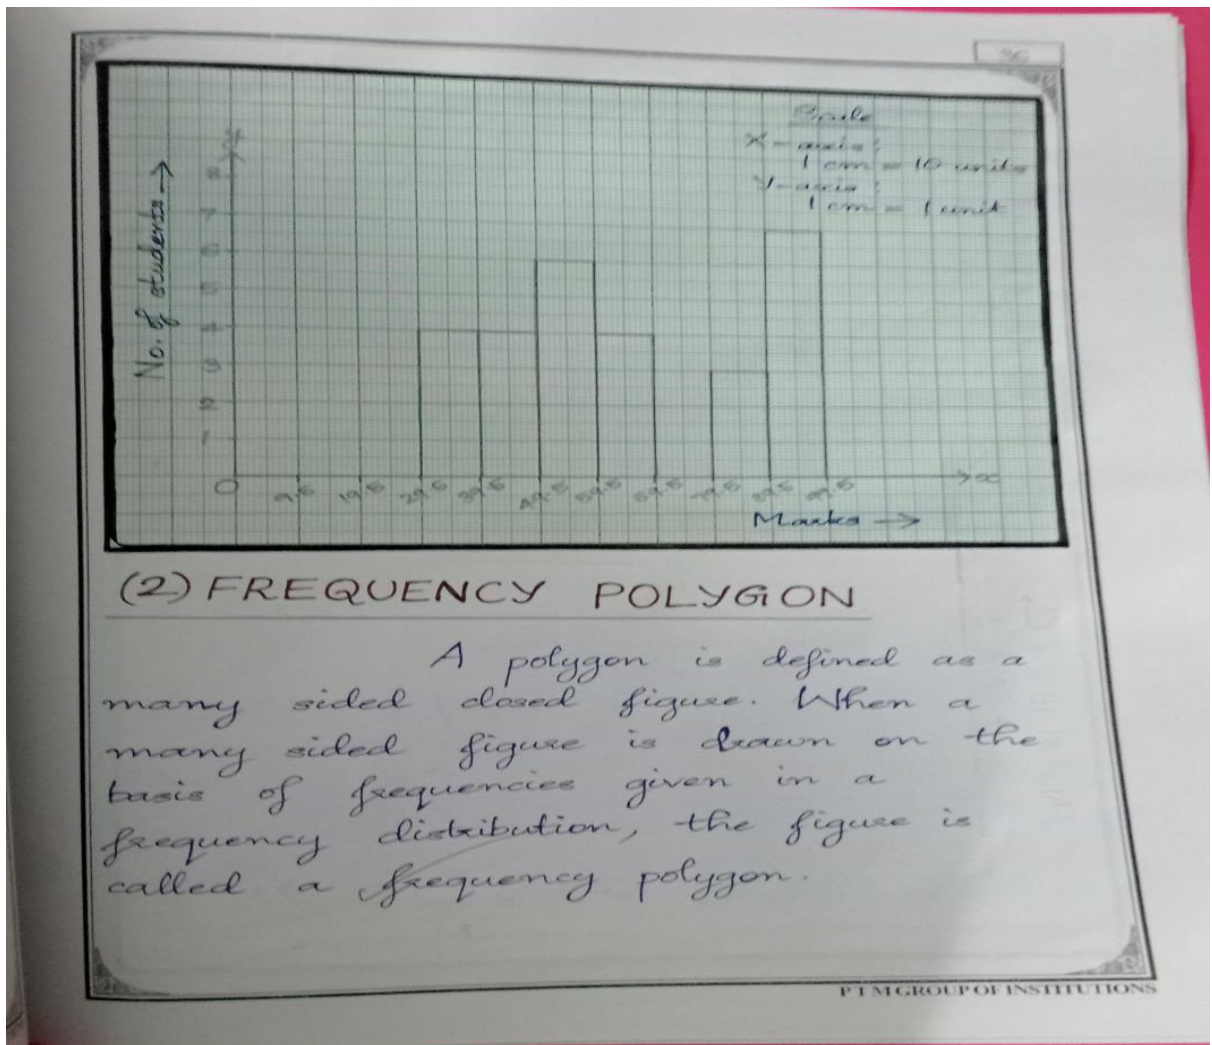 36
Scale
X-axis:
1 cm = 10 units
Y-axis:
1 cm = 1 unit
y
No. of students →
8
7
6
5
4
3
2
1
0 9.5 19.5 29.5 39.5 49.5 59.5 69.5 79.5 89.5 99.5 x
Marks →
(2) FREQUENCY POLYGON
A polygon is defined as a
many sided closed figure. When a
many sided figure is drawn on the
basis of frequencies given in a
frequency distribution, the figure is
called a frequency polygon.
P T M GROUP OF INSTITUTIONS